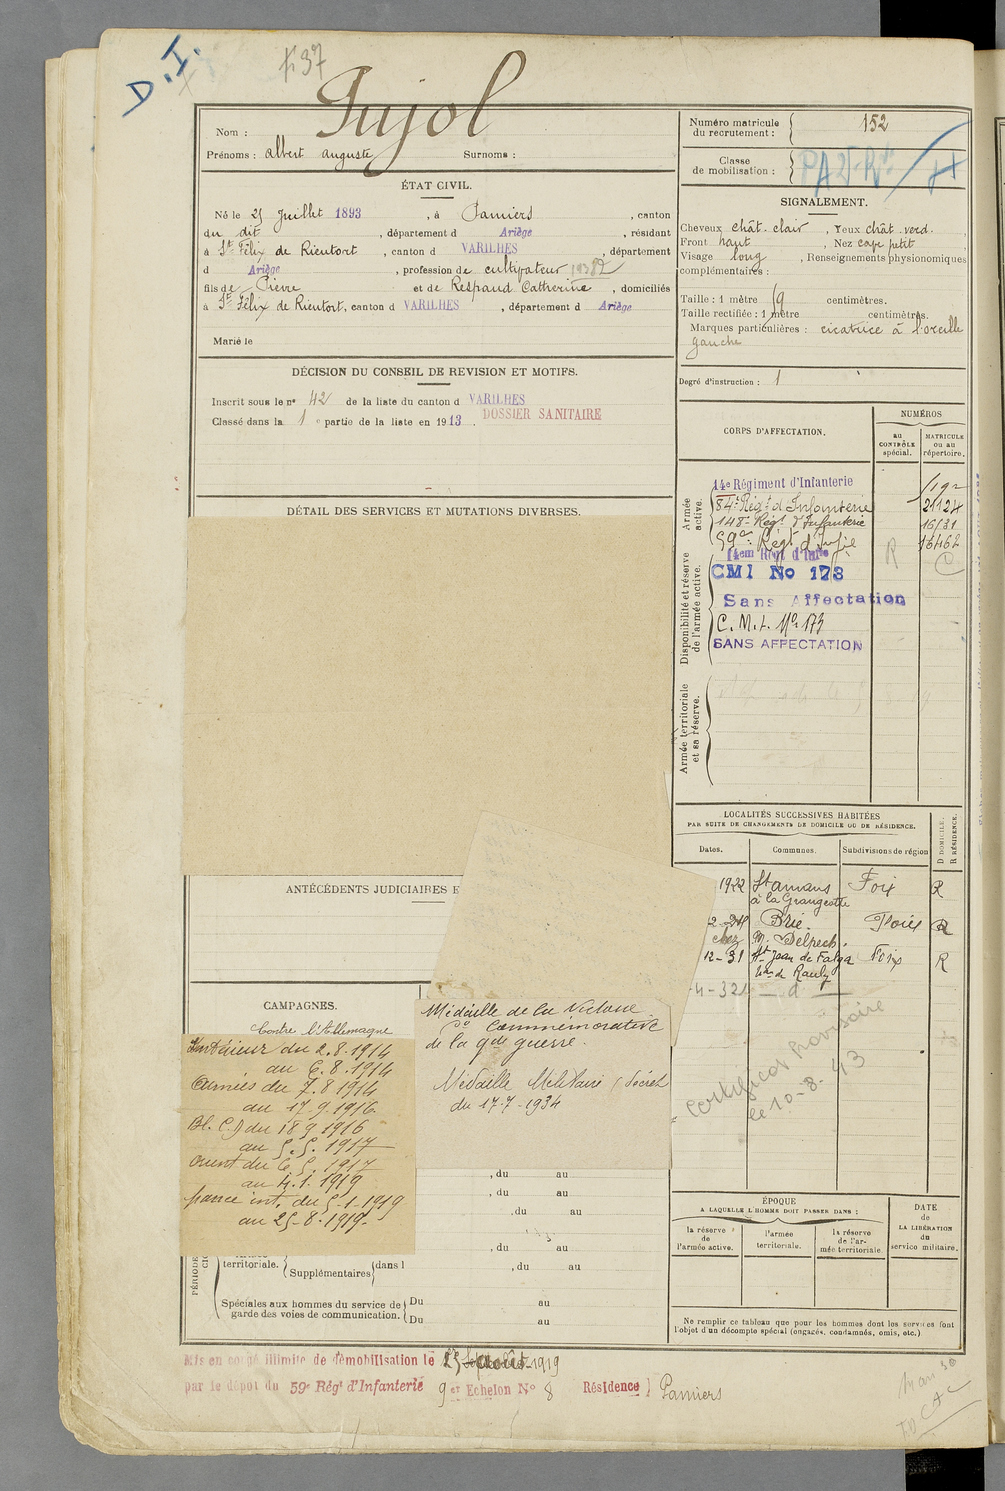 D.I.
Pujol
Nom :
Prénoms : albert auguste Surnoms :
Numéro matricule
du recrutement : 152
Classe
de mobilisation :
ÉTAT CIVIL.
Né le 25 Juillet 1893, à Pamiers, canton
du dit, département d Ariège, résidant
à St Félix de Rieutort, canton d VARILHES, département
d Ariège, profession de cultivateur
fils de Pierre et de Respaud Catherine, domiciliés
à St Félix de Rieutort, canton d VARILHES, département d Ariège
Marié le
SIGNALEMENT.
Cheveux chât. clair, Yeux chât. verd.
Front haut, Nez petit
Visage long, Renseignements physionomiques
complémentaires :
Taille : 1 mètre centimètres.
Taille rectifiée : 1 mètre centimètres.
Marques particulières : cicatrice à l'oreille
gauche
Degré d'instruction : 1
DÉCISION DU CONSEIL DE REVISION ET MOTIFS.
Inscrit sous le nº 42 de la liste du canton d VARILHES
Classé dans la 1e partie de la liste en 1913.
DOSSIER SANITAIRE
DÉTAIL DES SERVICES ET MUTATIONS DIVERSES.
CORPS D'AFFECTATION.
NUMÉROS
au
CONTRÔLE
spécial.
MATRICULE
ou au
répertoire.
Armée
active.
14e Régiment d'Infanterie
84e Régt d'Infanterie 21124
148e Régt d'Infanterie 16131
59e Régt d'Infie R 16462 C
Disponibilité et réserve
de l'armée active.
14eme Régt d'Infie
CMI No 173
Sans Affectation
C.M.I. No 173
SANS AFFECTATION
Armée territoriale
et sa réserve.
LOCALITÉS SUCCESSIVES HABITÉES
PAR SUITE DE CHANGEMENTS DE DOMICILE OU DE RÉSIDENCE.
Dates. Communes. Subdivisions de région
D DOMICILE.
R RÉSIDENCE.
1922 St amans Foix R
à la Grangeotte
Brie. Foix R
chez M. Delpech.
12-31 St Jean de Falga Foix R
-4-32 d
certificat provisoire
le 10-8-43
ANTÉCÉDENTS JUDICIAIRES E
CAMPAGNES.
Contre l'Allemagne
Intérieur du 2.8.1914
au 6.8.1914
Armées du 7.8.1914
au 17.9.1916
Bl. C.) du 18 9 1916
au 5.5.1917
Orient du 6.5.1917
au 4.1.1919
france int. du 5-1-1919
au 25-8-1919.
Médaille de la Victoire
do Commémorative
de la gde guerre.
Médaille Militaire (décret
du 17-7-1934
, du au
, du au
, du au
, du au
territoriale. Supplémentaires dans l , du au
Spéciales aux hommes du service de
garde des voies de communication.
Du au
Du au
ÉPOQUE
A LAQUELLE L'HOMME DOIT PASSER DANS :
la réserve
de
l'armée active.
l'armée
territoriale.
la réserve
de l'ar-
mée territoriale.
DATE
de
LA LIBÉRATION
du
service militaire.
Ne remplir ce tableau que pour les hommes dont les services font
l'objet d'un décompte spécial (engagés, condamnés, omis, etc.)
Mis en congé illimité de démobilisation le 25 août 1919
par le dépôt du 59e Régt d'Infanterie 9 er Echelon No 8 Résidence Pamiers